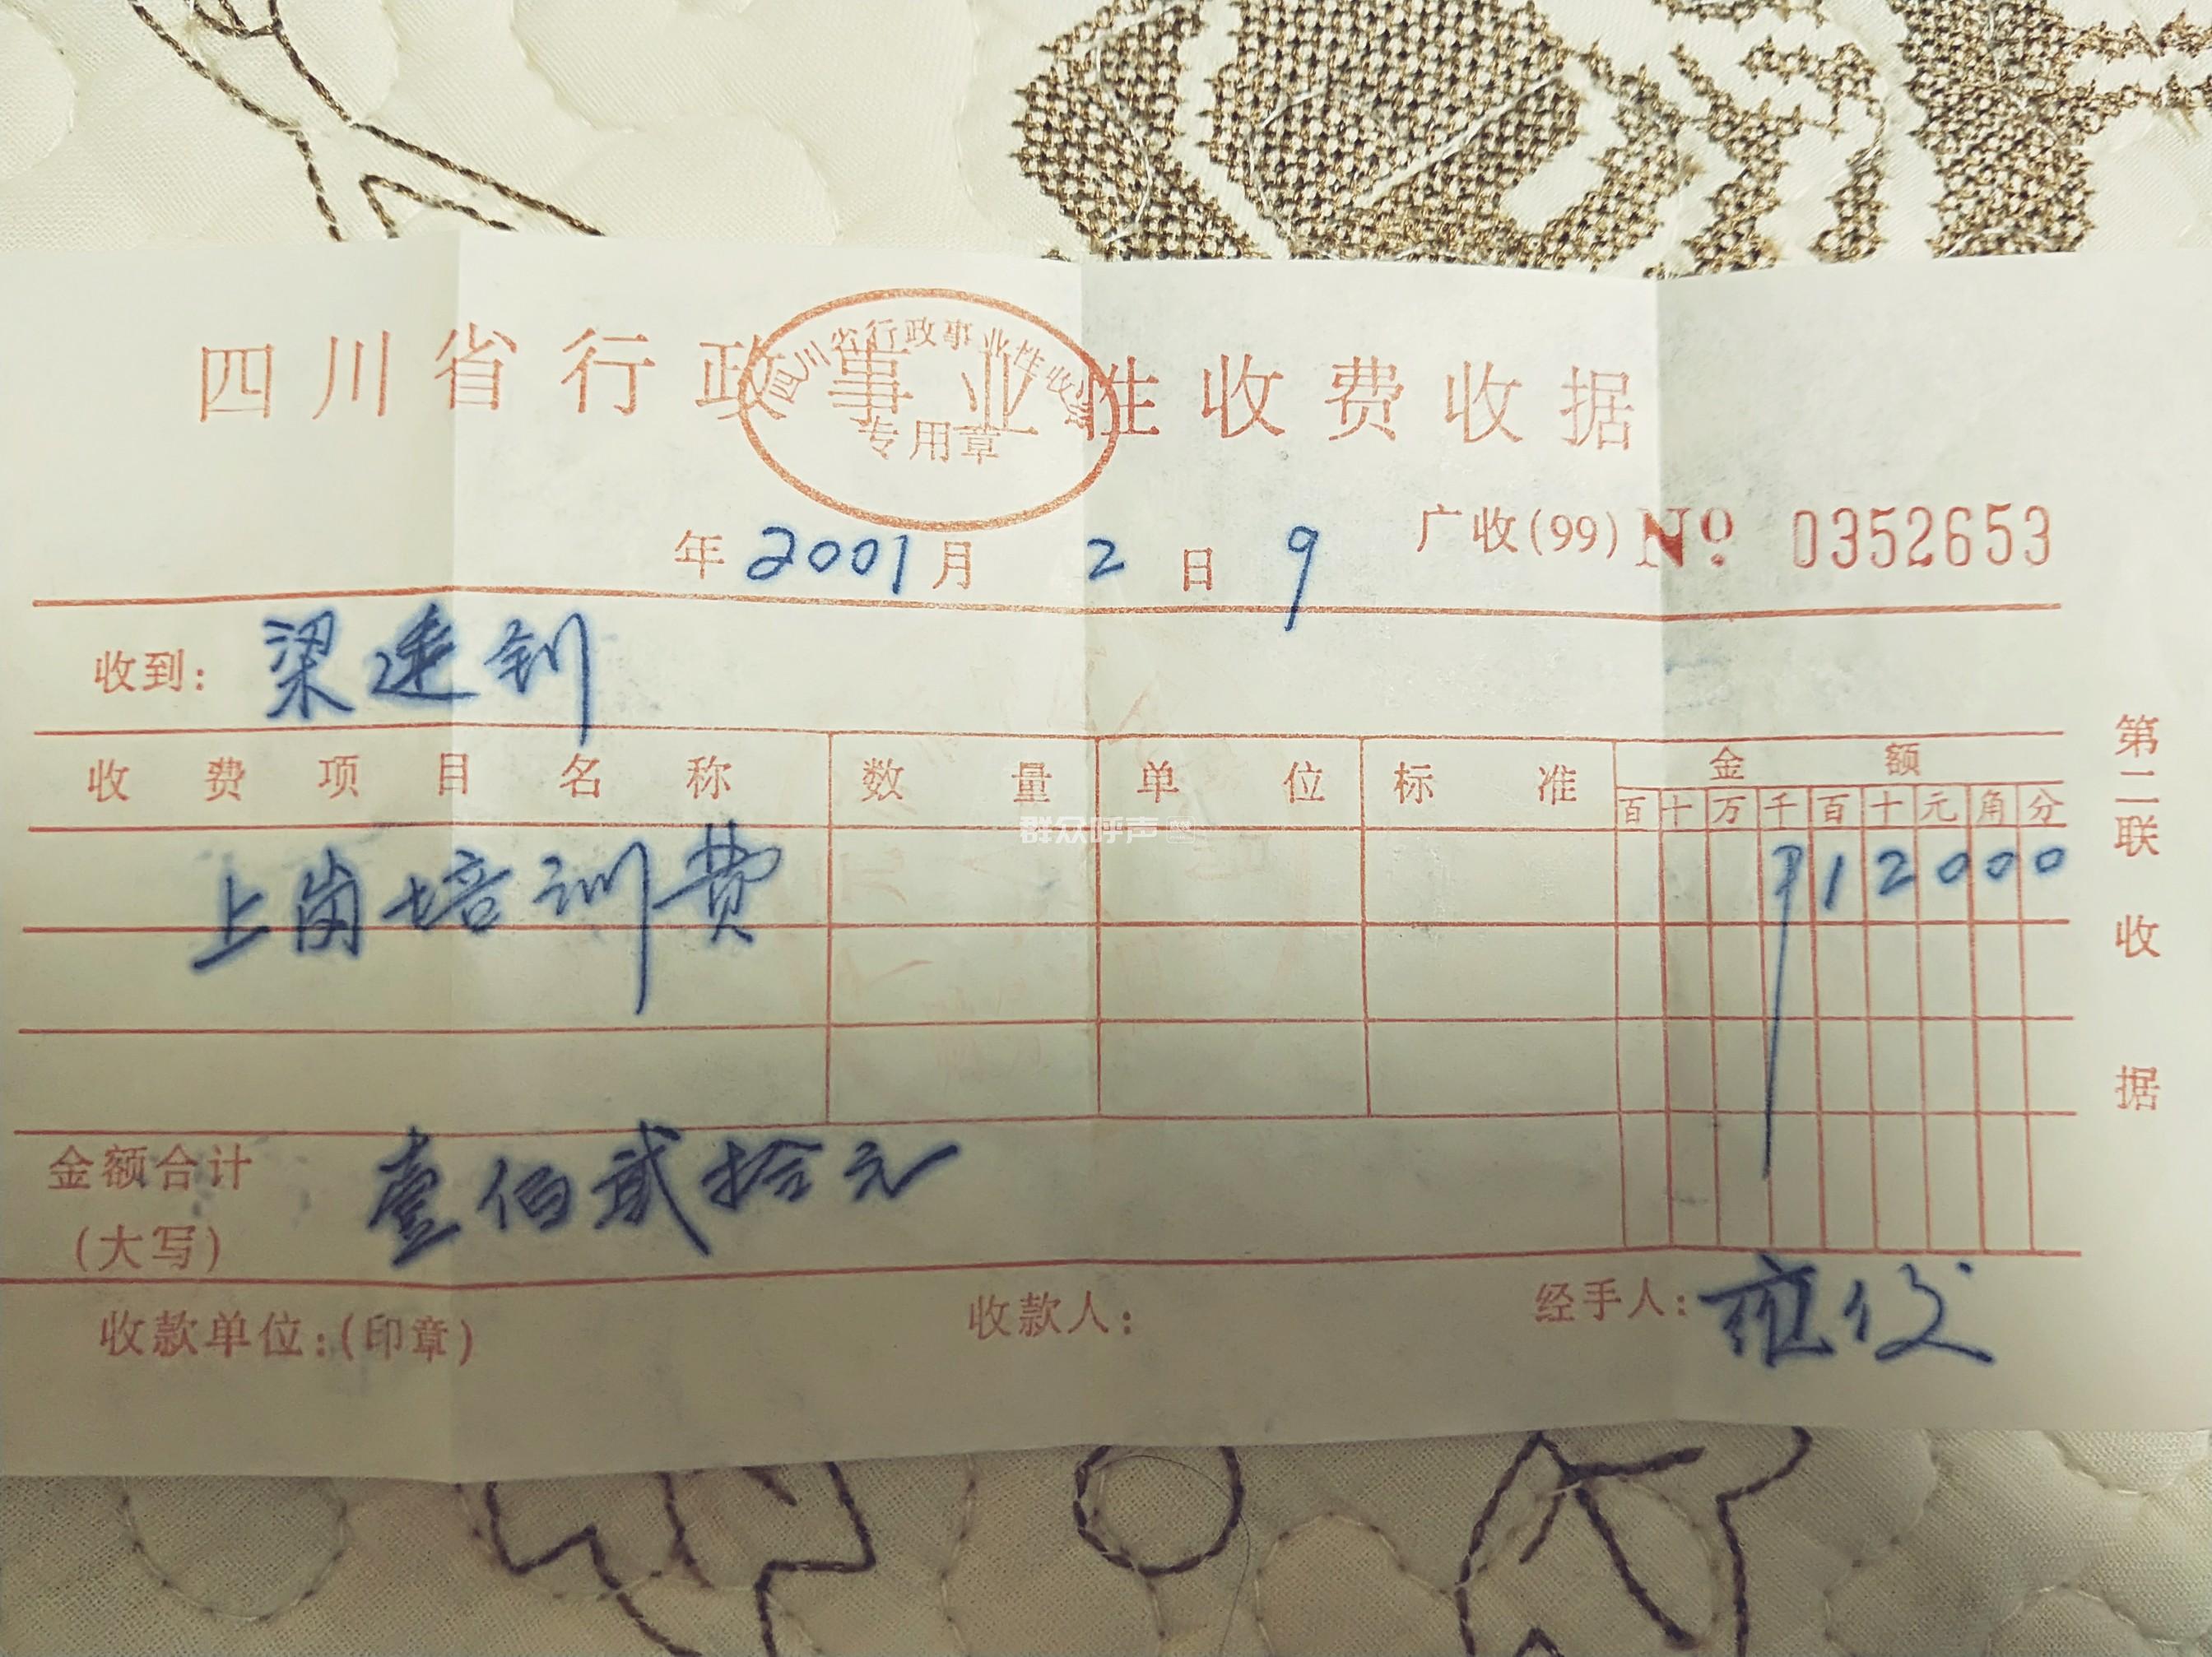 四川省行政事业性收费收据
四川省行政事业性收费
专用章
年 2001 月 2 日 9
广收(99) № 0352653
收到: 梁
收费项目名称 数量 单位 标准 金额
百 十 万 千 百 十 元 角 分
上岗培训费 12000
金额合计 壹佰贰拾元
(大写)
收款单位:(印章) 收款人: 经手人:
第二联 收据
群众呼声